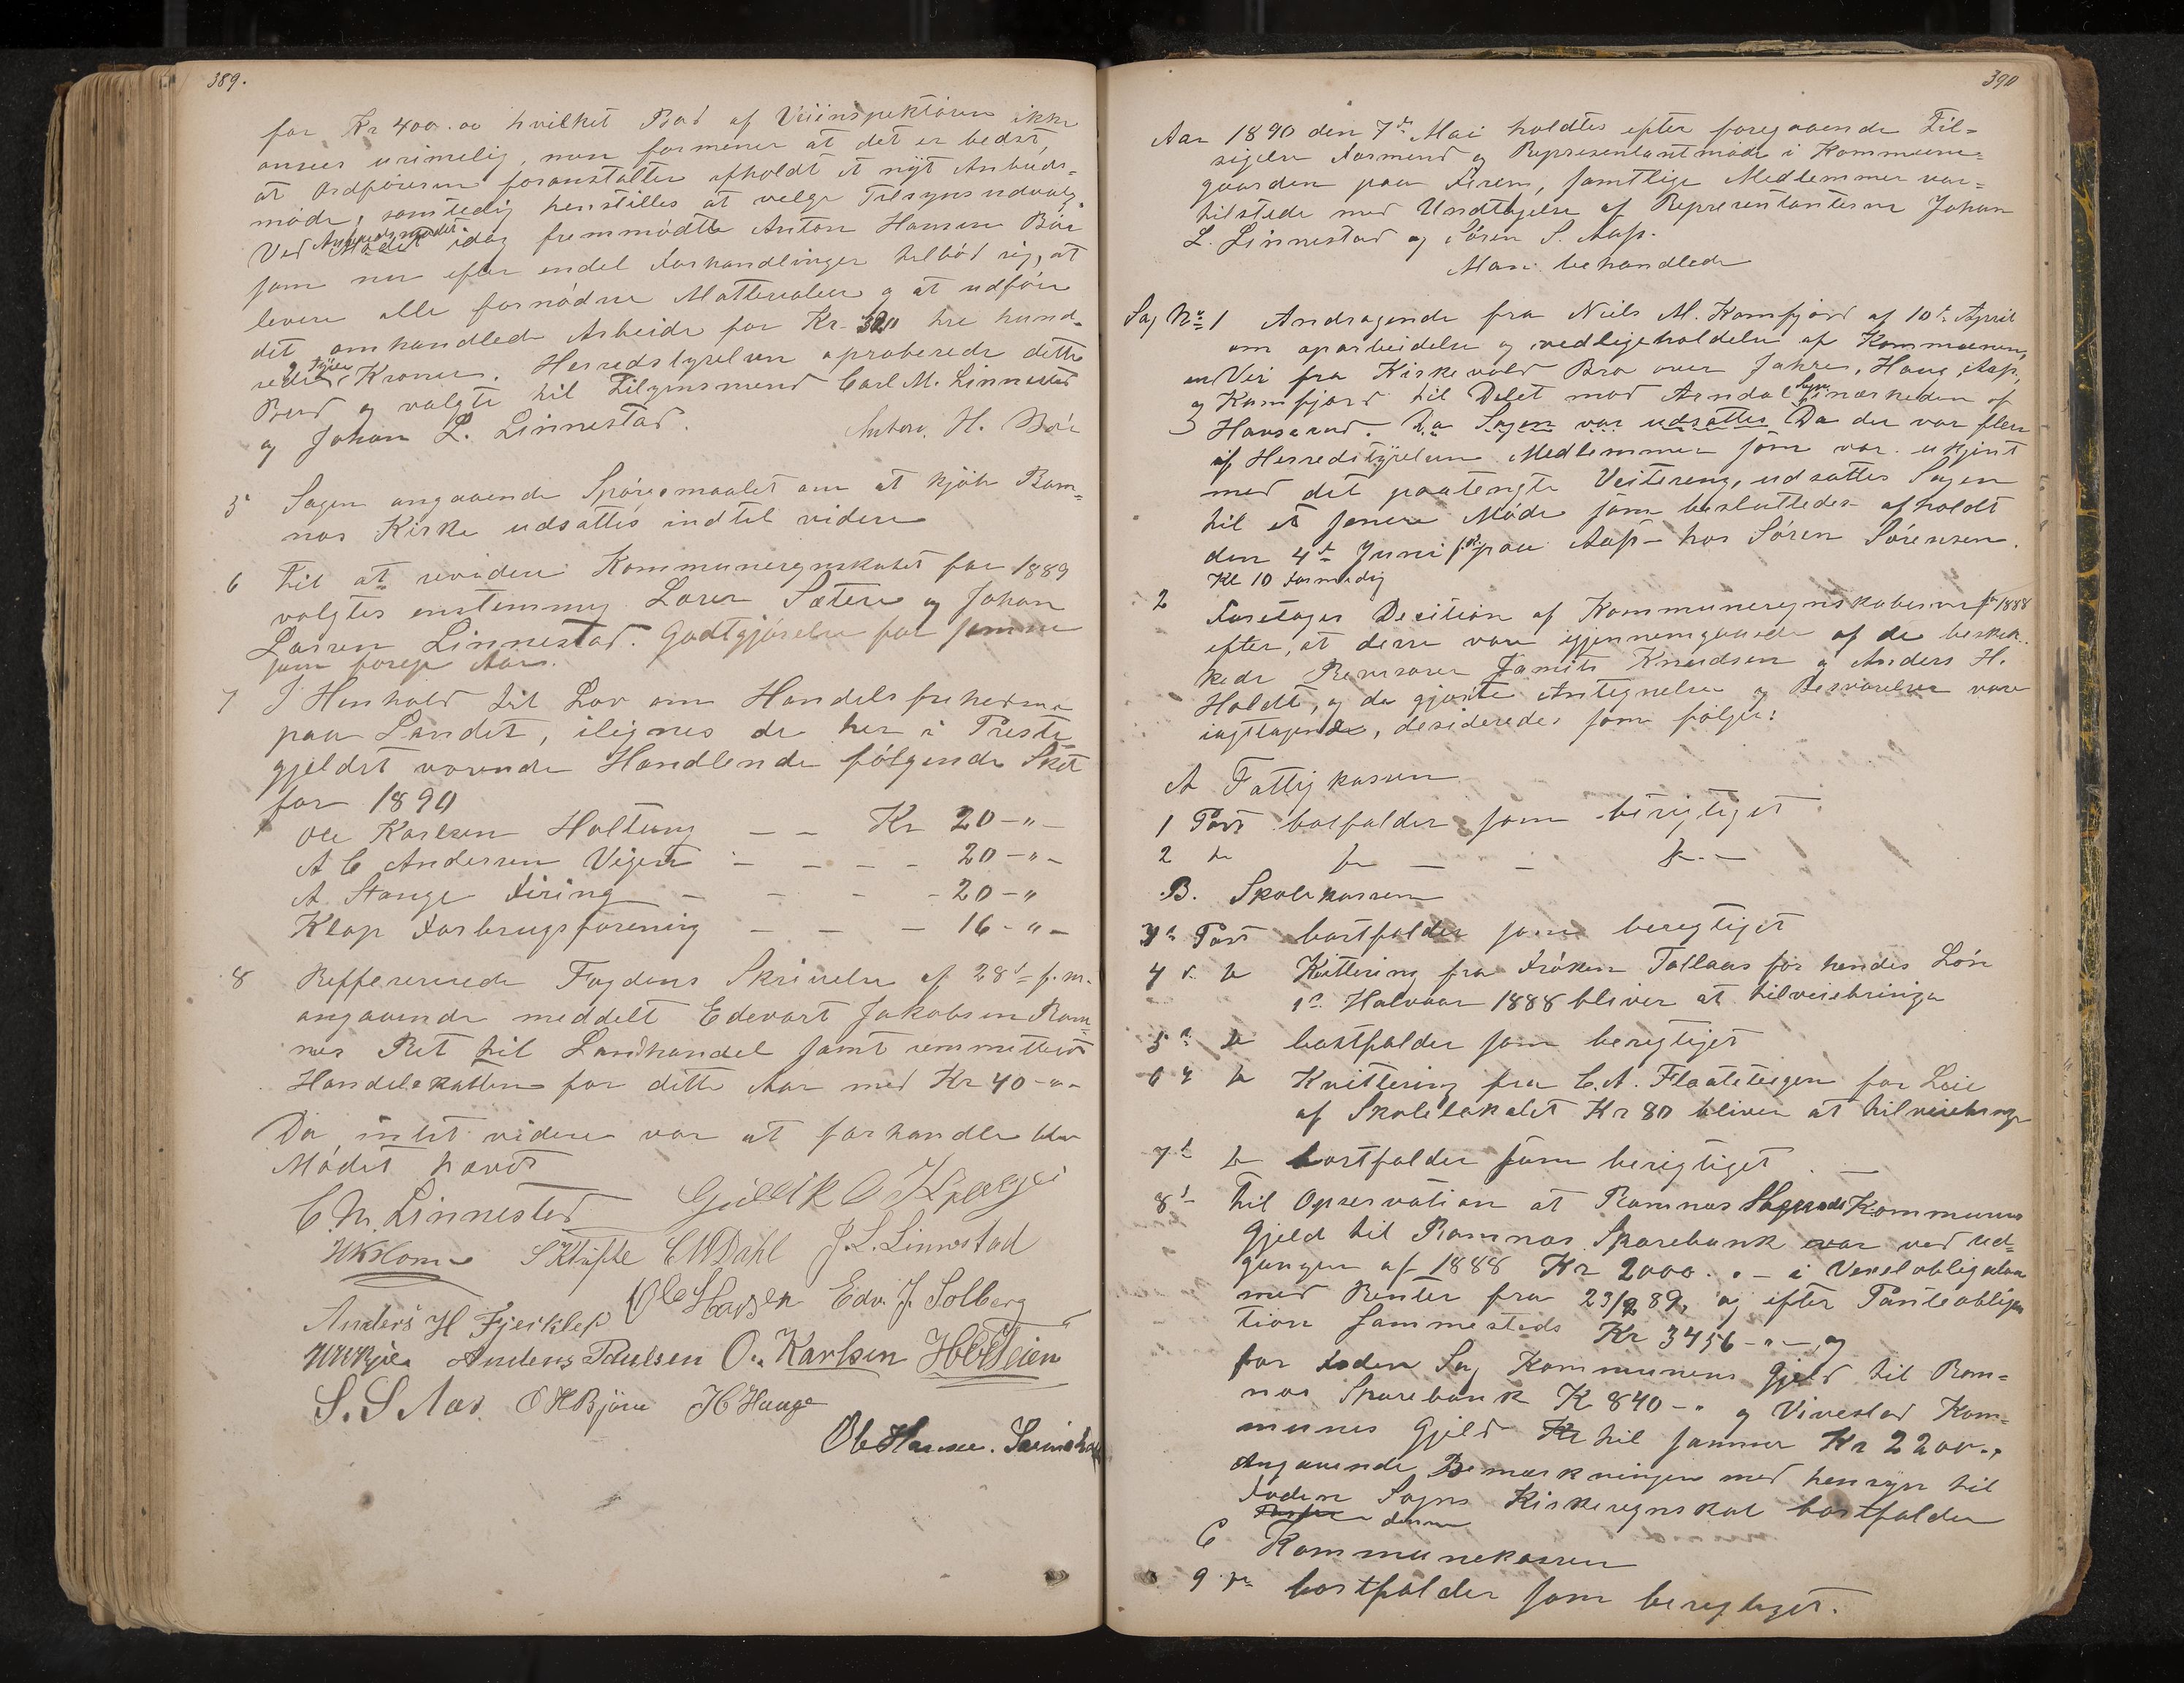 389.
for Kr 400.00 hvilket Bud af Veiinspektören ikke
ansees urimelig, man formener at det er bedst,
at Ordföreren foranstalter afholdt et nyt Anbuds-
möde, samtidig henstilles at velge Tilsynsudvalg.
Ved Anbudsmödet idag fremmödte Anton Hansen Böe
som nu efter endel Forhandlinger tilböd sig, at
levere alle fornödne Matterialier og at udföre
det omhandlede Arbeide for Kr. 320 tre hund-
rede og tyve Kroner. Herredstyrelsen aproberede dette
Bud og valgte til Tilsynsmend Carl M. Linnestad
og Johan L. Linnestad. Anton H. Böe
5 Sagen angaaende Spörgsmaalet om at kjöbe Ram-
nes Kirke udsattes indtil videre
6 Til at revidere Kommuneregnskabet for 1889
valgtes enstemmig Lorens Sætere og Johan
Larsen Linnestad. Godtgjörelse for samme
som forrige Aar.
7 I Henhold til Lov om Handelsfriheden
paa Landet, ilignes de her i Preste-
gjeldet værende Handlende fölgende Skat
for 1890
Ole Karlsen Holtung — — Kr 20-"-
A C Andersen Vegert — — — — 20-"-
A. Stange Firing — — — — 20-"
Klop Forbrugsforening — — — 16-"-
8 Reffererede Fogdens Skrivelse af 28de f. m.
angaaende meddelt Edevart Jakobsen Ram-
nes Ret til Landhandel samt remitteret
Handelskatten for dette Aar med Kr 40-"-
Da intet videre var at forhandle blev
Mödet hævet
C. M. Linnestad Gullik O Kjærge
C M Dahl J. L. Linnestad
Anders H Fjerkles Ole Hansen Edv. J. Solberg
Anders Paulsen O. Karlsen
S. S Aas. O H Björu H Hauge
Ole Hansen.
390
Aar 1890 den 7de Mai holdtes efter foregaaende Til-
sigelse Formend og Representantmöde i Kommune-
gaarden paa Firing, samtlige Medlemmer var
tilstede med Undtagelse af Representanterne Johan
L. Linnestad og Sören S. Aas.
Man behandlede
Sag No 1 Andragende fra Niels M. Kamfjord af 10de April
om oparbeidelse og vedligeholdelse af Kommunen,
en Vei fra Kirkevold Bro over Jahre, Haug, Aas,
og Kamfjord til Delet mod Arndal Sogn i nærheden af
Hanserud. Da Sagen var udsattes Da der var flere
af Herredstyrelsens Medlemmer som var ukjent
med det paatengte Veiterreng, udsattes Sagen
til et senere Möde som besluttedes afholdt
den 4de Juni paa Aas hos Sören Sörensen.
Kl 10 Formidag
2 Foretoges Decition af Kommuneregnskaberne for 1888
efter, at disse vare igjennemgaaede af de beskik-
kede Revisorer Jamits Knudsen og Anders H.
Holdt, og de gjorte Antegnelser og Besvarelser vare
iagttagende, desideredes som fölger:
A Fattigkassen
1 Post bortfalder som berigtiget
2 do do — — do —
B. Skolekassen
3de Post bortfalder som berigtiget
4de do Kvittering fra Fröken Tollaas for hendes Lön
1ste Halvaar 1888 bliver at tilveiebringe
5te do bortfalder som berigtiget
6te do Kvittering fra C. A. Flaateteigen for Leie
af Skolelokalet Kr 80 bliver at tilveiebringe
7de do bortfalder som berigtiget
8de Til Opservation at Ramnes Kommunes
Gjeld til Ramnes Sparebank var ved Ud-
gangen af 1888 Kr 2000.- i Vexelobligation
med Renter fra 23/9 89, og efter Panteobliga-
tion sammesteds Kr 3456-"- og
for Foden Sog Kommunens Gjeld til Ram-
nes Sparebank K 840-" og Vivestad Kom-
munes Gjeld Kr til samme Kr 2200.,
Angaaende Bemærkningen med hensyn til
Fodens Sogns Kirkeregnskab bortfalder
denne
C Kommunekassen
9de bortfalder som berigtiget.